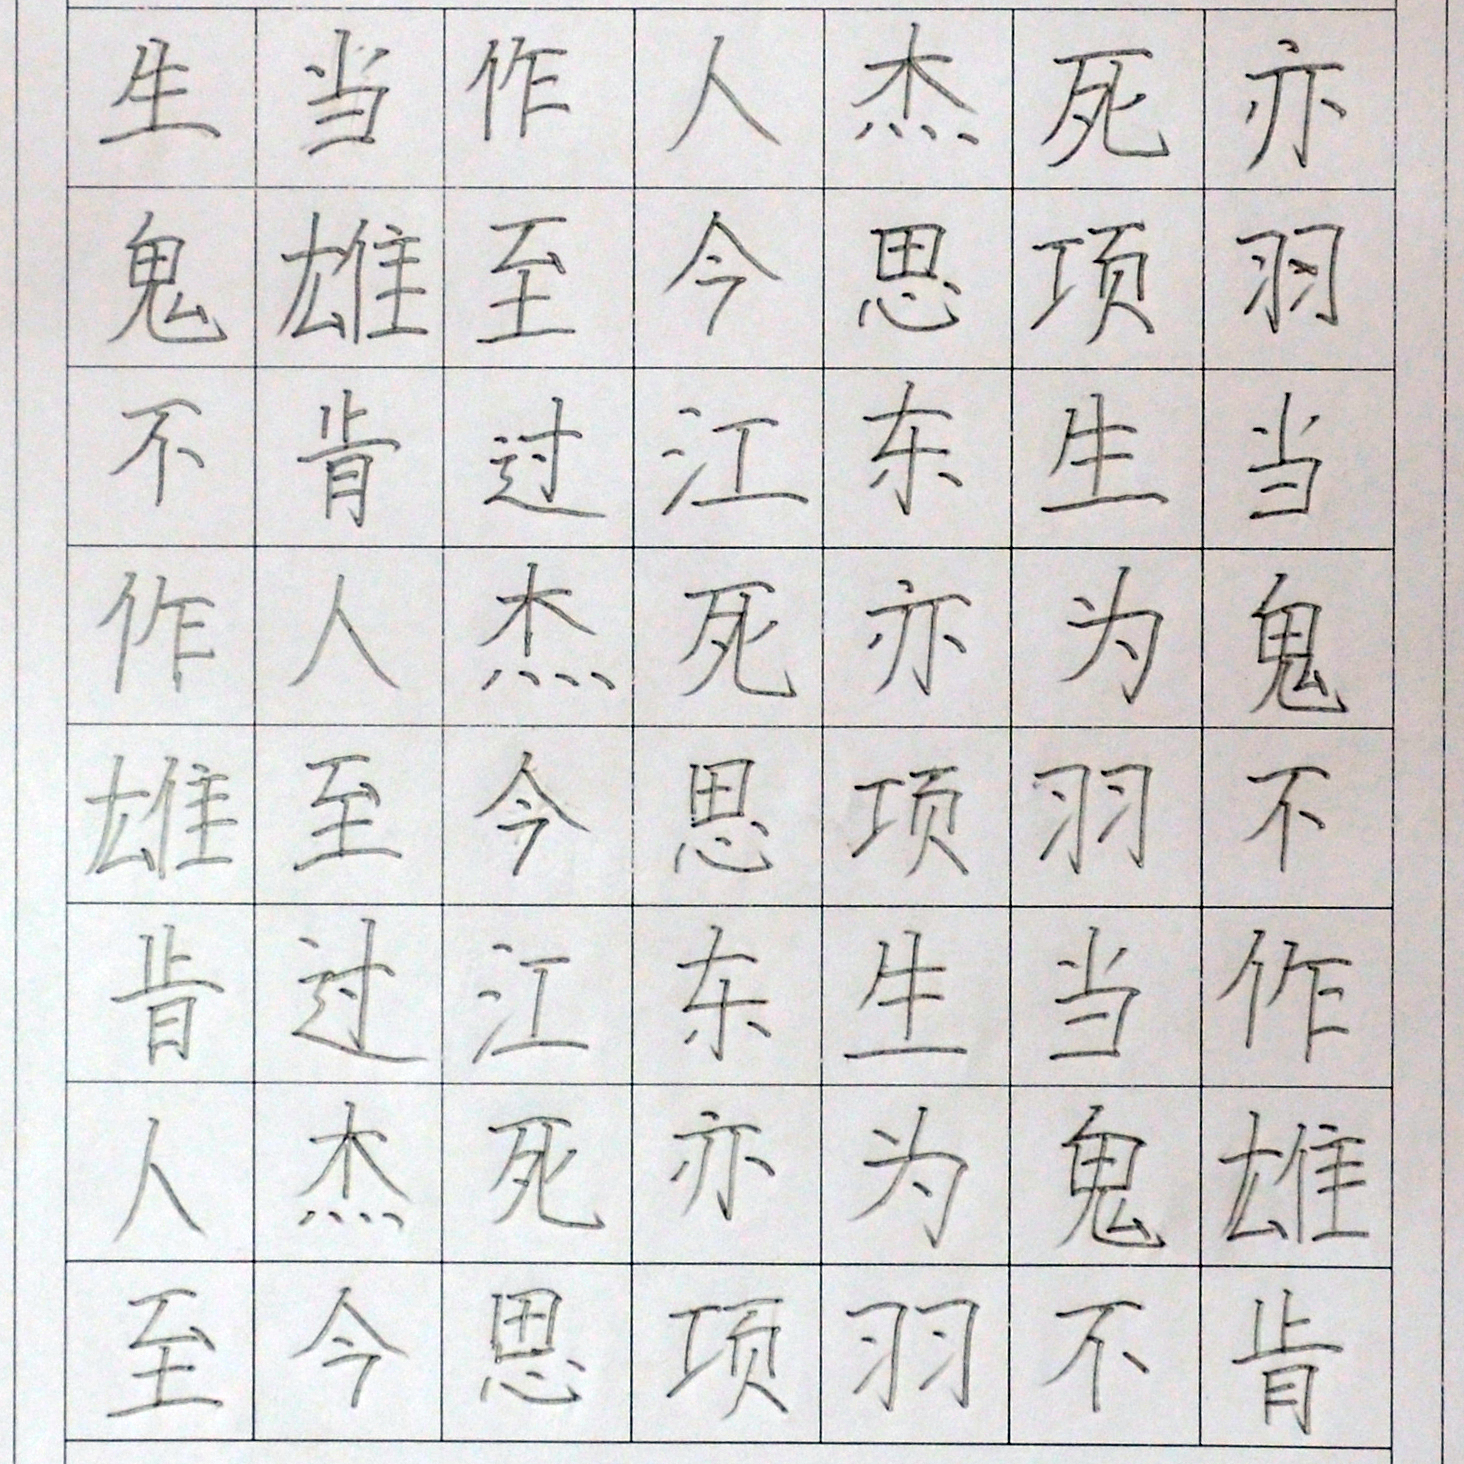 生当作人杰死亦
鬼雄至今思项羽
不肯过江东生当
作人杰死亦为鬼
雄至今思项羽不
肯过江东生当作
人杰死亦为鬼雄
至今思项羽不肯